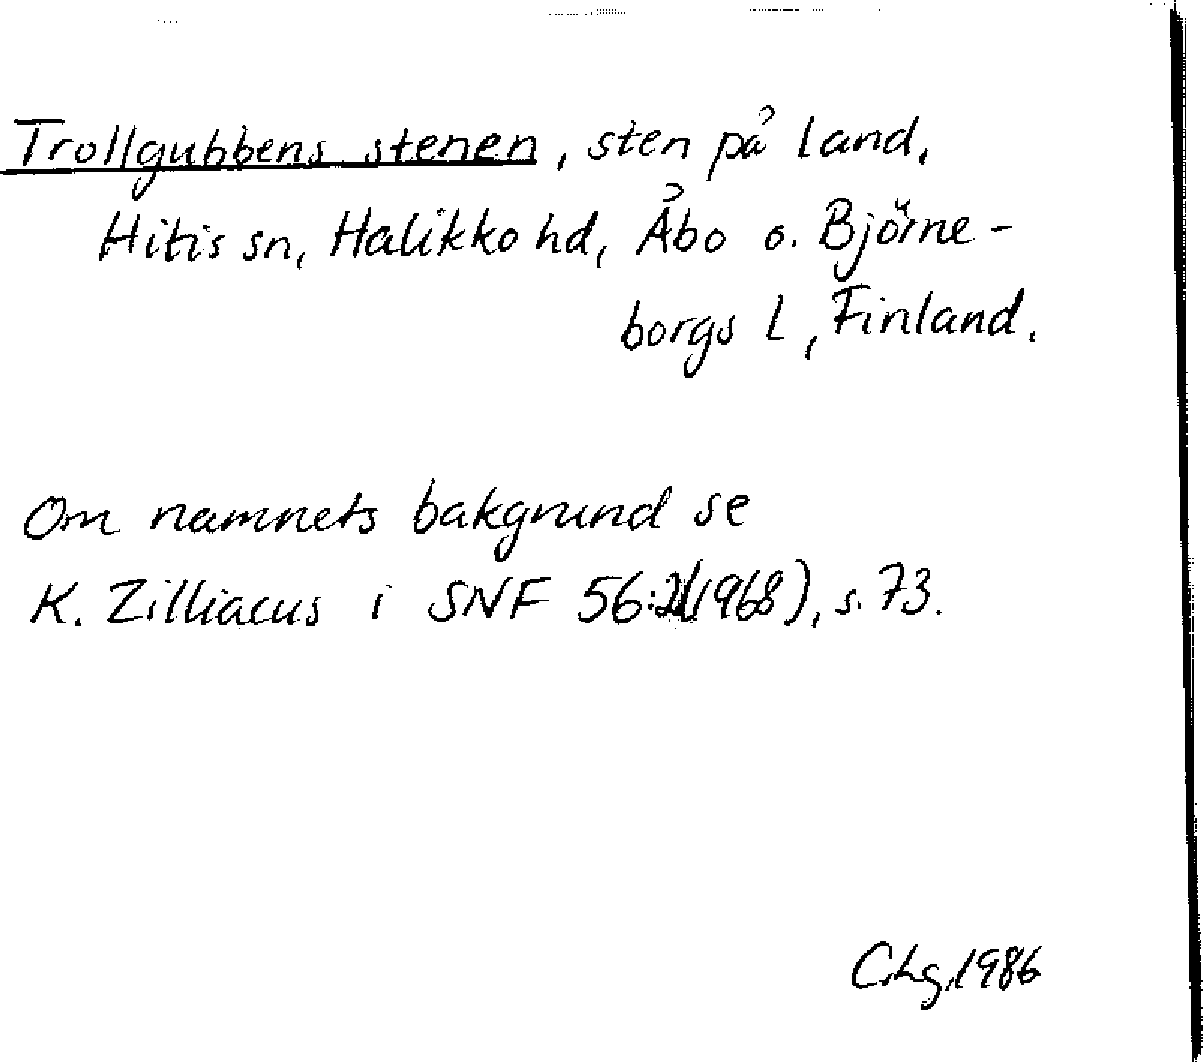 Trollgubbens stenen, sten på land,
Hitis sn, Halikko hd, Åbo o. Björne-
borgs L, Finland.
Om namnets bakgrund se
K. Zilliacus i SNF 56:2(1968), s. 73.
C.Lg.1986